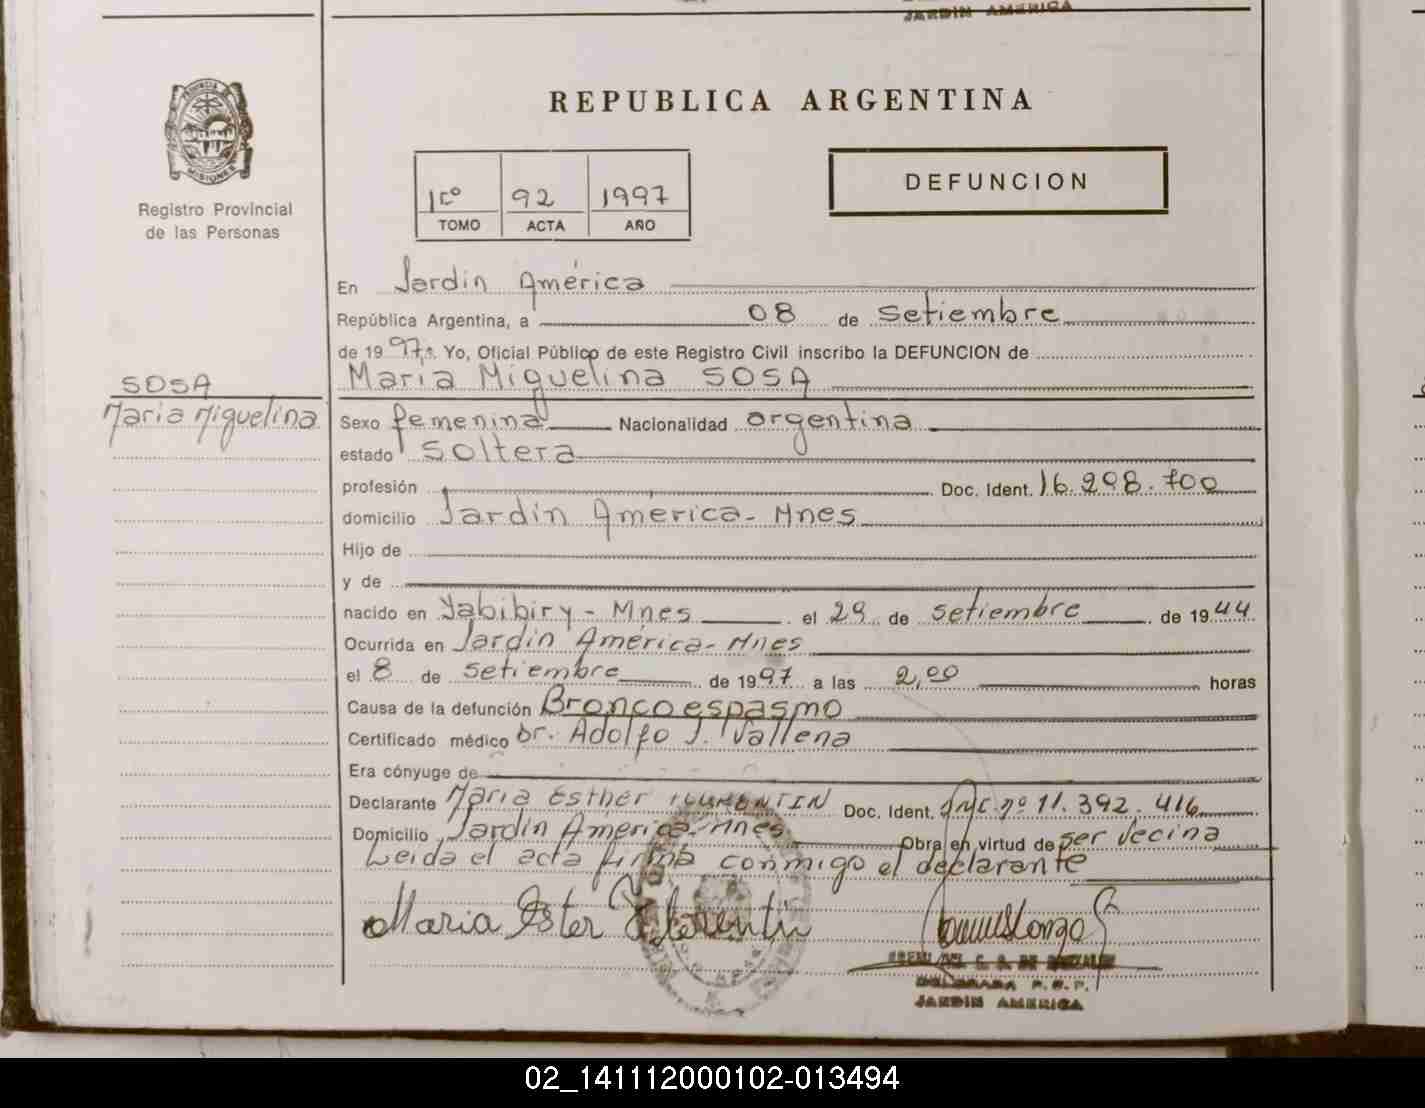 JARDIN AMERICA
PROVINCIA DE
MISIONES
Registro Provincial
de las Personas
REPUBLICA ARGENTINA
1cº 92 1997
TOMO ACTA AÑO
DEFUNCION
En Jardin América
República Argentina, a 08 de Setiembre
de 1997. Yo, Oficial Público de este Registro Civil inscribo la DEFUNCION de
Maria Miguelina SOSA
SOSA
Maria Miguelina
Sexo femenina Nacionalidad argentina
estado Soltera
profesión Doc. Ident. 16.298.700
domicilio Jardin America - Mnes
Hijo de
y de
nacido en Yabibiry - Mnes el 29 de Setiembre de 1944
Ocurrida en Jardin America - Mnes
el 8 de Setiembre de 1997 a las 2,00 horas
Causa de la defunción Broncoespasmo
Certificado médico Dr. Adolfo J. Vallena
Era cónyuge de
Declarante Maria Esther FLORENTIN Doc. Ident. DNI nº 11.392.416
Domicilio Jardin America - Mnes Obra en virtud de ser Vecina
Leida el acta firma conmigo el declarante
Maria Ester Florentin
DELEGADA R.P.P.
JARDIN AMERICA
02_141112000102-013494